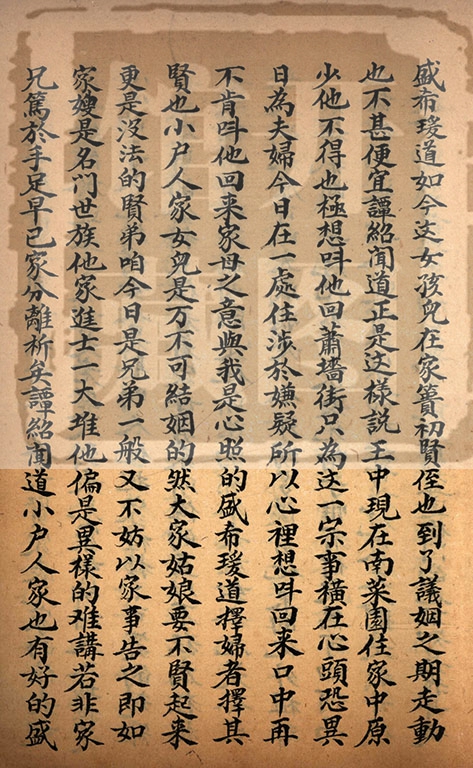 盛希瑗道如今这女孩儿在家簣初賢侄也到了議姻之期走動
也不甚便宜譚紹聞道正是这樣說王中現在南菜園住家中原
少他不得也極想呌他回蕭墻街只為这一宗事橫在心頭恐異
日為夫婦今日在一處住涉於嫌疑所以心裡想呌回来口中再
不肯呌他回来家母之意與我是心照的盛希瑗道擇婦者擇其
賢也小户人家女兒是万不可結姻的然大家姑娘要不賢起来
更是没法的賢弟咱今日是兄弟一般又不妨以家事告之即如
家嫂是名門世族他家進士一大堆他偏是異樣的难講若非家
兄篤於手足早已家分離祈矣譚紹聞道小户人家也有好的盛